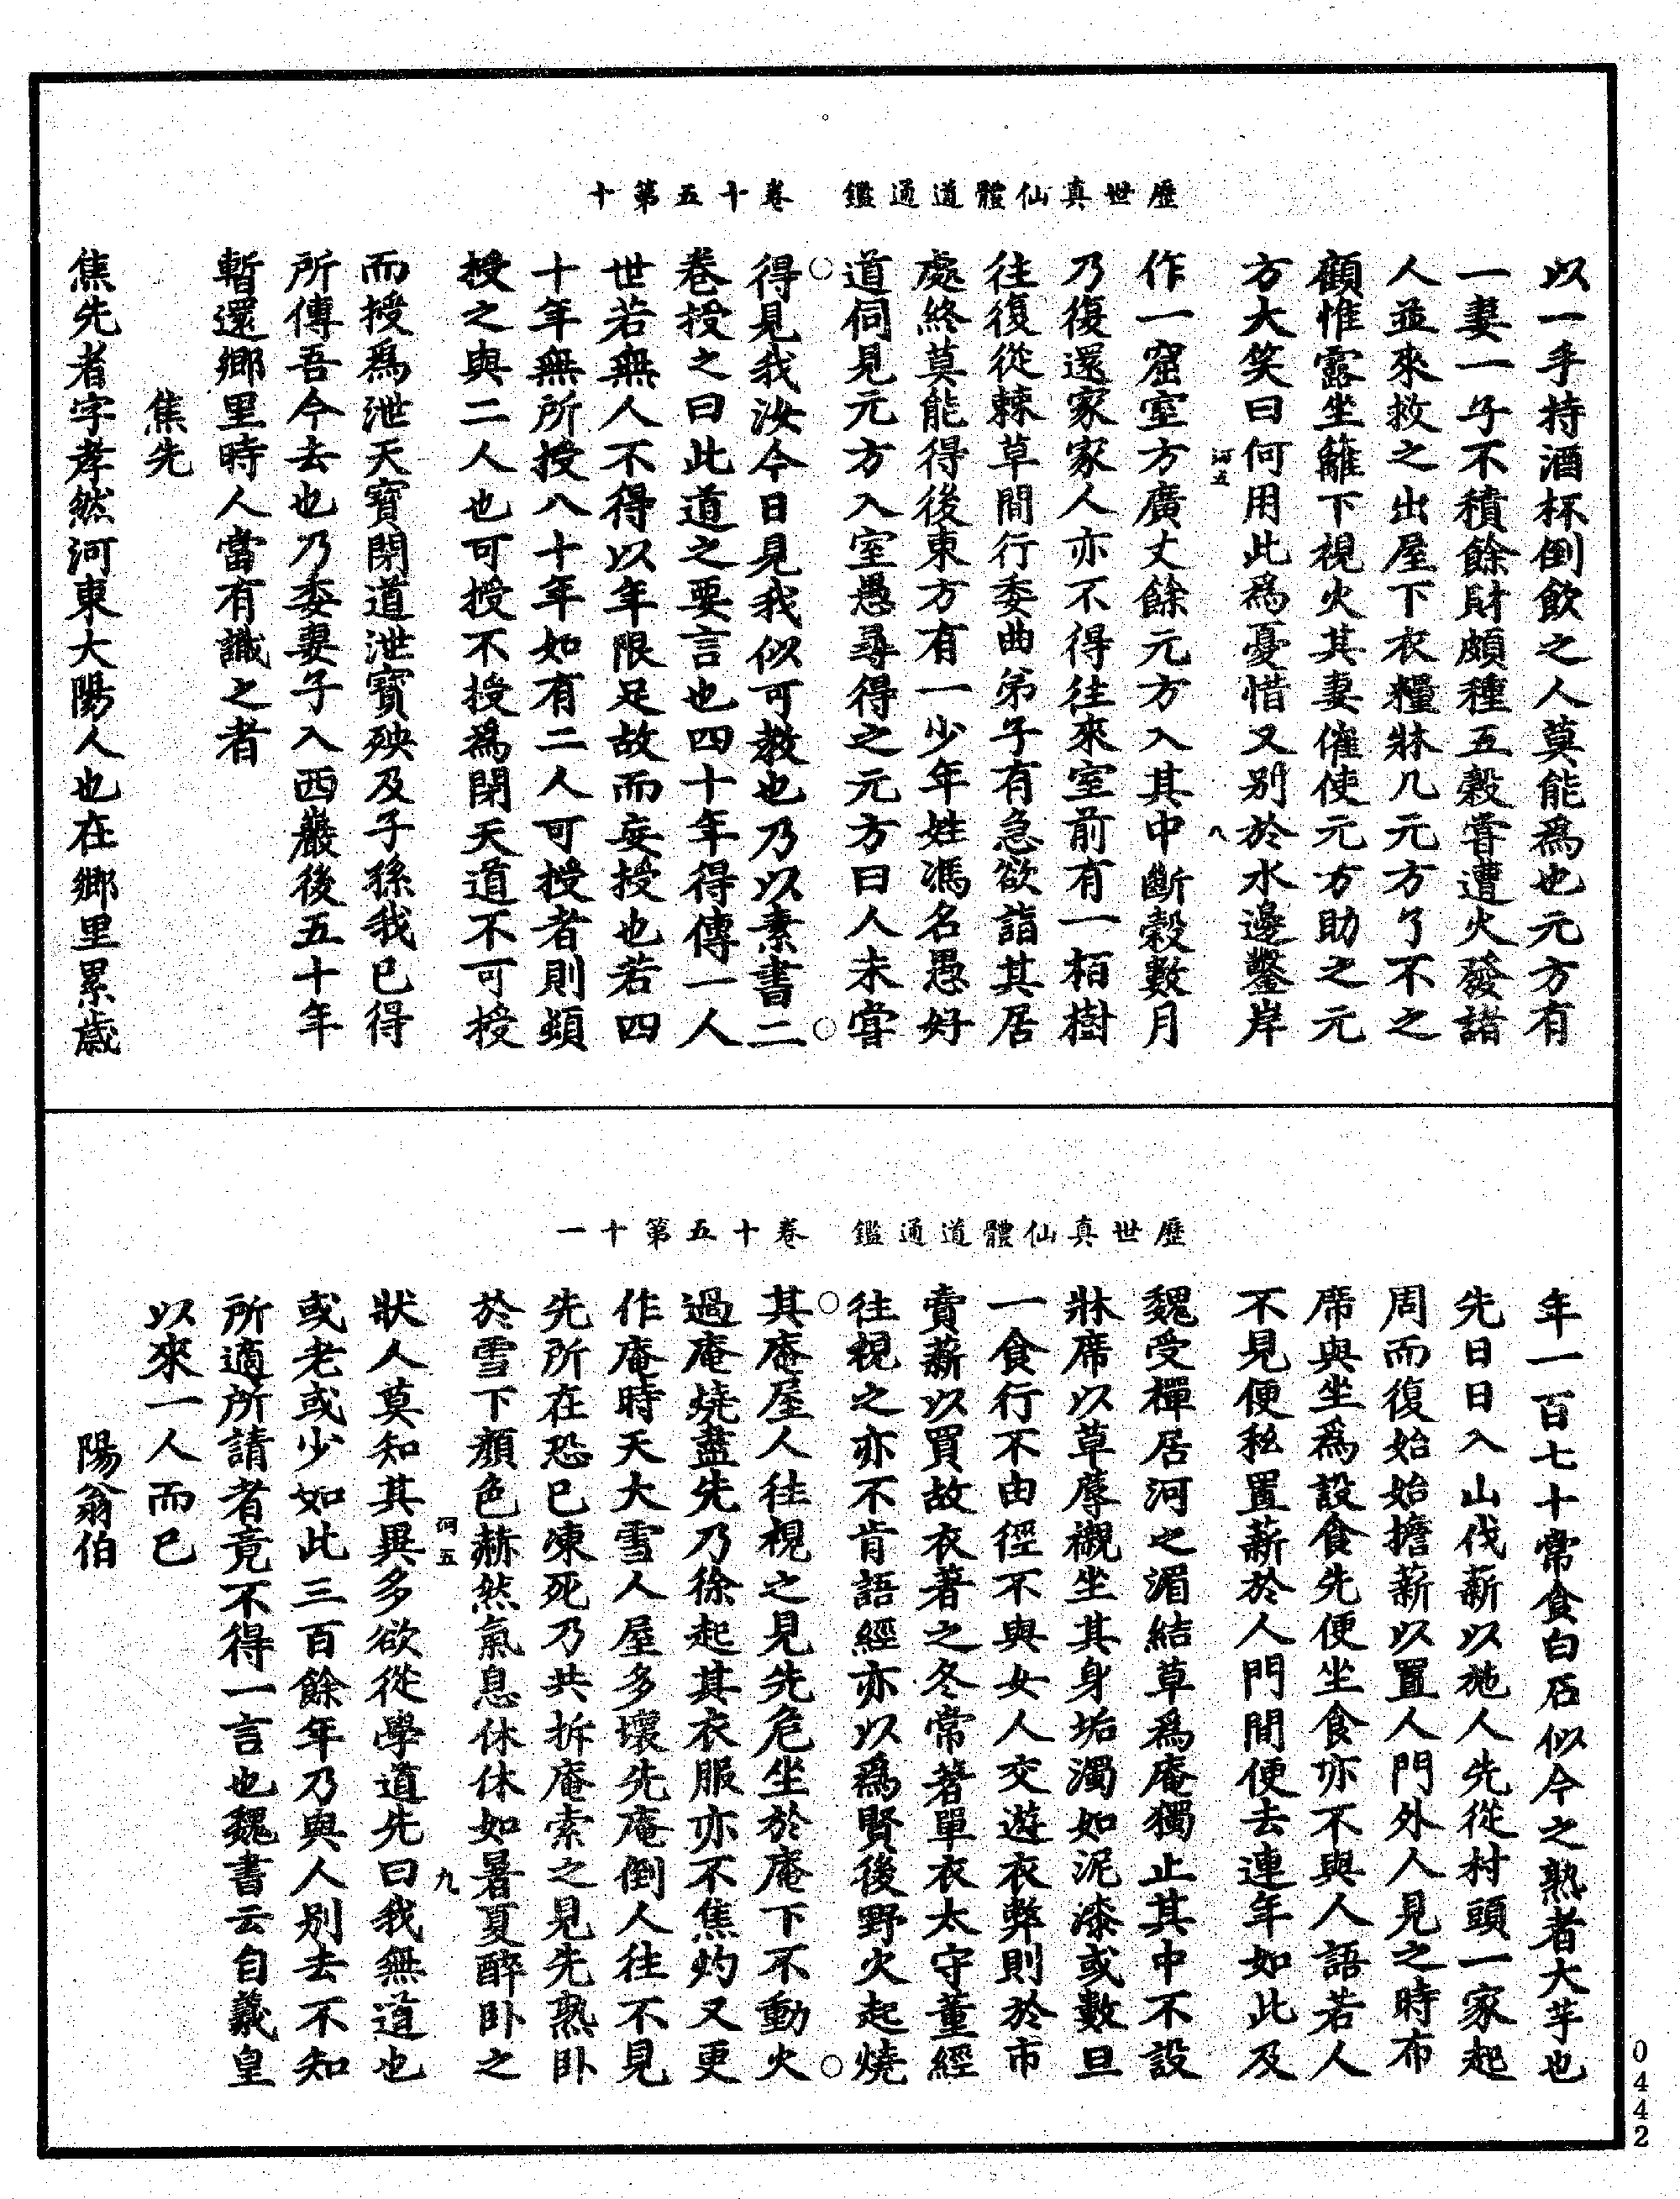 歷世真仙體道通鑑　卷十五第十
以一手持酒杯倒飲之人莫能爲也元方有
一妻一子不積餘財頗種五穀嘗遭火發諸
人並來救之出屋下衣糧牀几元方了不之
顧惟露坐籬下視火其妻催使元方助之元
方大笑曰何用此爲憂惜又別於水邊鑿岸
河五　八
作一窟室方廣丈餘元方入其中斷穀數月
乃復還家家人亦不得往來室前有一栢樹
往復從棘草間行委曲弟子有急欲詣其居
處終莫能得後東方有一少年姓馮名愚好
道伺見元方入室愚尋得之元方曰人未嘗
得見我汝今日見我似可教也乃以素書二
卷授之曰此道之要言也四十年得傳一人
世若無人不得以年限足故而妄授也若四
十年無所授八十年如有二人可授者則頓
授之與二人也可授不授爲閉天道不可授
而授爲泄天寶閉道泄寶殃及子孫我已得
所傳吾今去也乃委妻子入西嶽後五十年
暫還鄉里時人當有識之者
焦先
焦先者字孝然河東大陽人也在鄉里累歲
歷世真仙體道通鑑　卷十五第十一
年一百七十常食白石似今之熟者大芋也
先日日入山伐薪以施人先從村頭一家起
周而復始始擔薪以置人門外人見之時布
席與坐爲設食先便坐食亦不與人語若人
不見便私置薪於人門間便去連年如此及
魏受禪居河之湄結草爲庵獨止其中不設
牀席以草蓐襯坐其身垢濁如泥漆或數旦
一食行不由徑不與女人交遊衣弊則於市
賣薪以買故衣著之冬常著單衣太守董經
往視之亦不肯語經亦以爲賢後野火起燒
其庵屋人往視之見先危坐於庵下不動火
過庵燒盡先乃徐起其衣服亦不焦灼又更
作庵時天大雪人屋多壞先庵倒人往不見
先所在恐已凍死乃共拆庵索之見先熟卧
於雪下顏色赫然氣息休休如暑夏醉卧之
河五　九
狀人莫知其異多欲從學道先曰我無道也
或老或少如此三百餘年乃與人別去不知
所適所請者竟不得一言也魏書云自羲皇
以來一人而已
陽翁伯
0442